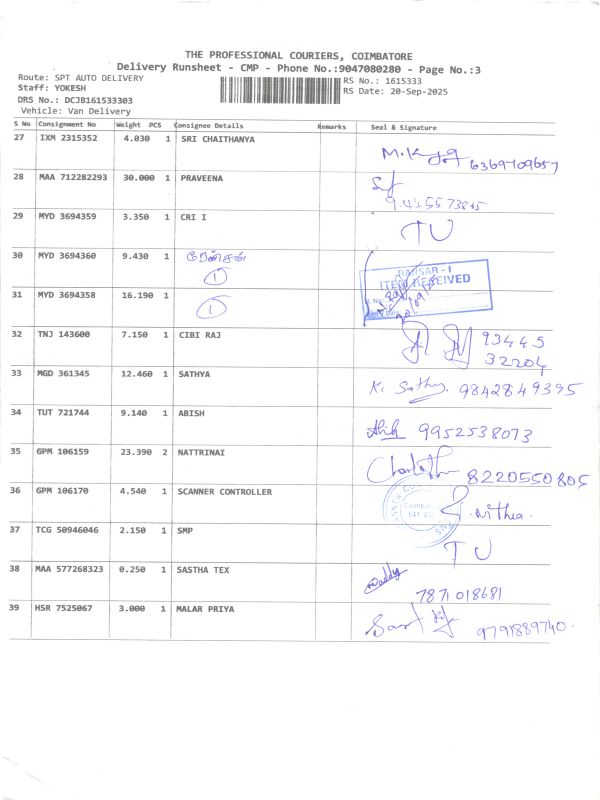 THE PROFESSIONAL COURIERS, COIMBATORE
Delivery Runsheet - CMP - Phone No.:9047080280 - Page No.:3
Route: SPT AUTO DELIVERY
RS No.: 1615333
Staff: YOKESH
RS Date: 20-Sep-2025
DRS No.: DCJB161533303
Vehicle: Van Delivery
S No Consignment No Weight PCS Consignee Details Remarks Seal & Signature
27 IXM 2315352 4.030 1 SRI CHAITHANYA
6369709657
28 MAA 712282293 30.000 1 PRAVEENA
29 MYD 3694359 3.350 1 CRI I
TU
30 MYD 3694360 9.430 1
1
ITEM RECEIVED
31 MYD 3694358 16.190 1
1
32 TNJ 143600 7.150 1 CIBI RAJ
93445
32204
33 MGD 361345 12.460 1 SATHYA
K. Sathy 9842849395
34 TUT 721744 9.140 1 ABISH
9952538073
35 GPM 106159 23.390 2 NATTRINAI
8220550805
36 GPM 106170 4.540 1 SCANNER CONTROLLER
37 TCG 50946046 2.150 1 SMP
TU
38 MAA 577268323 0.250 1 SASTHA TEX
7871018681
39 HSR 7525067 3.000 1 MALAR PRIYA
9791889740.